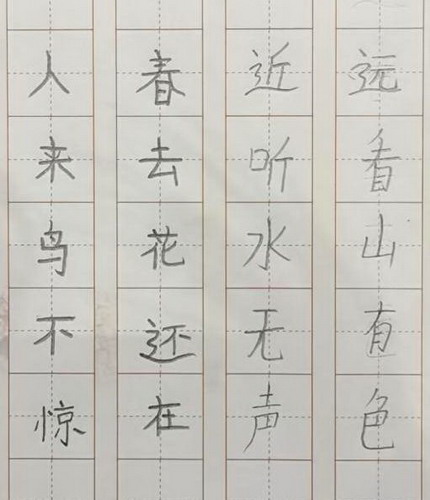 远看山有色
近听水无声
春去花还在
人来鸟不惊